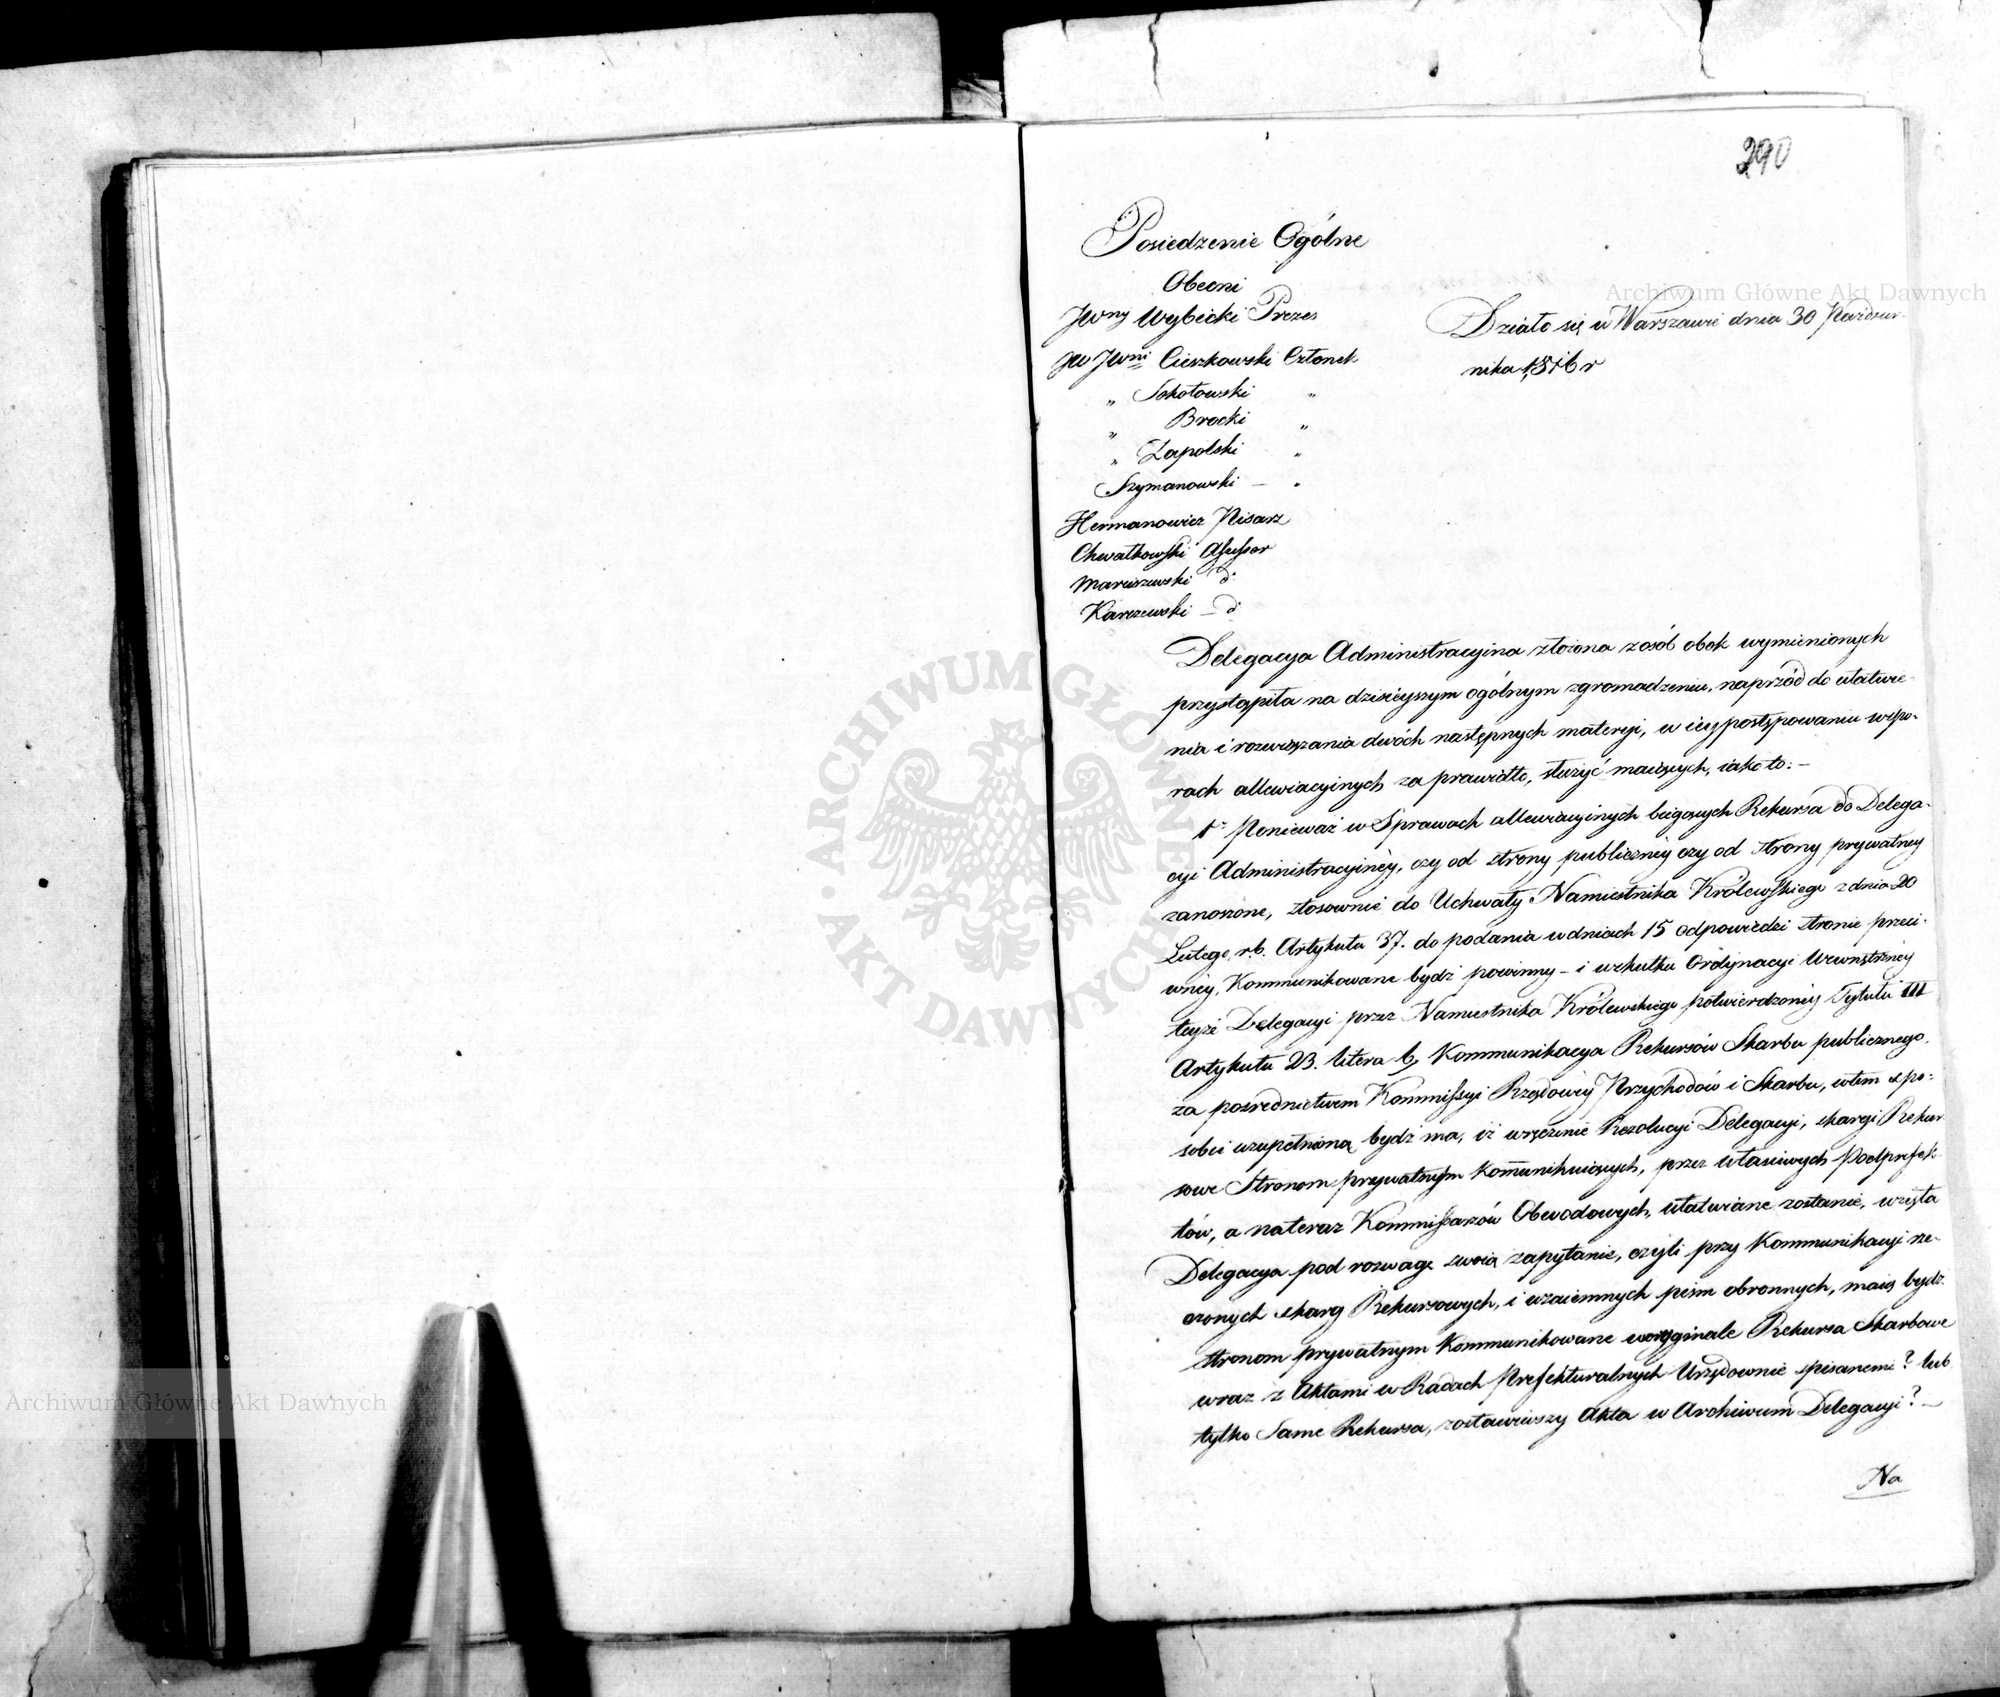 290
Posiedzenie Ogólne
Obecni
JWny Wybicki Prezes
Działo się w Warszawie dnia 30 Paździer-
nika 1816 r
JW JWni Cieszkowski Członek
„ Sokołowski „
„ Brocki „
„ Zapolski „
Szymanowski — „
Hermanowicz Pisarz
Chwatkowski Assessor
Marciszewski d°
Karczewski — d°
Delegacya Administracyina złożona z osób obok wymienionych
przystąpiła na dzisieyszym ogólnym zgromadzeniu, naprzód do ułatwie-
nia i rozwiązania dwóch następnych materyi, w iey postępowaniu w spo-
rach allewiacyinych za prawidło, służyć maiących, iako to: —
1° Ponieważ w Sprawach allewiacyinych biegących Rekursa do Delega-
cyi Administracyiney, czy od strony publiczney czy od strony prywatney
zanoszone, stosownie do Uchwały Namiestnika Królewskiego z dnia 20
Lutego r.b. Artykułu 37. do podania w dniach 15 odpowiedzi stronie przeci-
wney, Kommunikowane bydź powinny — i wskutku Ordynacyi Wewnętrzney
teyże Delegacyi przez Namiestnika Królewskiego potwierdzoney Tytułu III
Artykułu 23. litera b, Kommunikacya Rekursów Skarbu publicznego,
za pośrednictwem Kommissyi Rządowey Przychodów i Skarbu, w tem spo-
sobie uzupełnioną bydź ma, iż wręczenie Rezolucyi Delegacyi, skargi Rekur
sowe Stronom prywatnym kommunikuiących, przez właściwych Podprefek-
tów, a na teraz Kommissarzów Obwodowych, ułatwiane zostanie, wzięła
Delegacya pod rozwagę swoią zapytanie, czyli przy Kommunikacyi rze-
czonych skarg Rekursowych, i wzaiemnych pism obronnych, maią bydź
stronom prywatnym Kommunikowane w oryginale Rekursa Skarbowe
wraz z Aktami w Radach Prefekturalnych Urzędownie spisanemi? lub
tylko Same Rekursa, zostawiwszy Akta w Archiwum Delegacyi? —
Na
Archiwum Główne Akt Dawnych
Archiwum Główne Akt Dawnych
ARCHIWUM GŁÓWNE AKT DAWNYCH